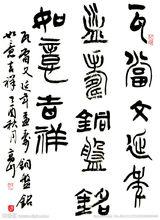 瓦當文延年
益壽銅盤銘
如意吉祥
瓦當文延年益壽銅盤銘
如意吉祥丁酉秋月